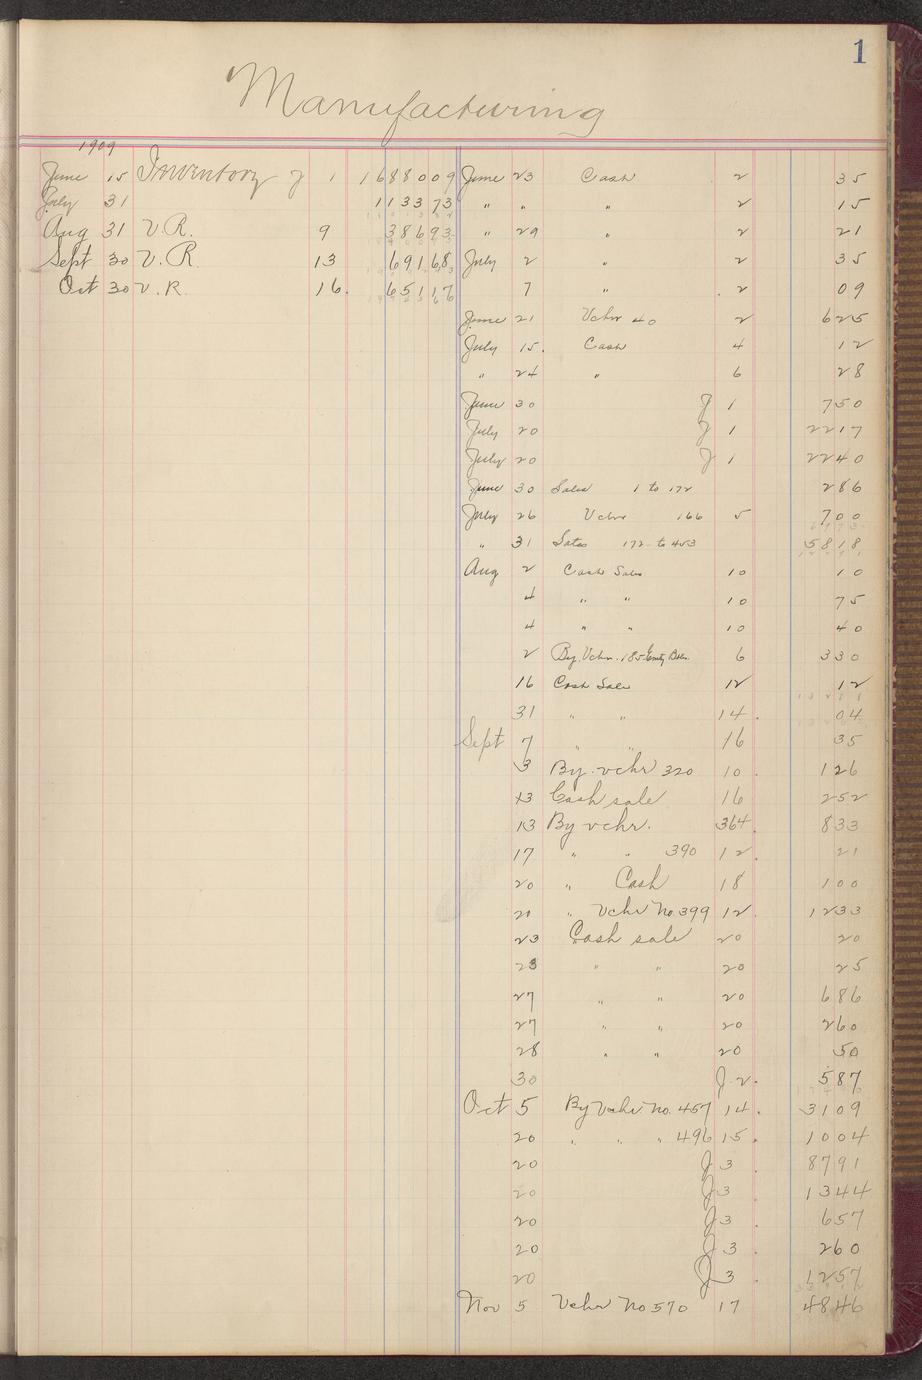 1
Manufacturing
1909
June 15 Inventory J 1 1688009
July 31 113373
Aug 31 V.R. 9 38693
Sept 30 V.R. 13 69168
Oct 30 V.R. 16. 65117
June 23 Cash 2 35
" " " 2 15
" 29 " 2 21
July 2 " 2 35
7 " 2 09
June 21 Vchr 40 2 625
July 15. Cash 4 12
" 24 " 6 28
June 30 J 1 750
July 20 J 1 2217
July 20 J 1 2240
June 30 Sales 1 to 172 286
July 26 Vchr 166 5 700
" 31 Sales 172 to 453 5818
Aug 2 Cash Sales 10 10
4 " " 10 75
4 " " 10 40
2 By Vchr. 185 6 330
16 Cash Sale 12 12
31 " " 14. 04
Sept 7 " " 16 35
3 By vchr 320 10. 126
13 Cash sale 16 252
13 By vchr. 364. 833
17 " " 390 12. 21
20 " Cash 18 100
21 " Vchr No. 399 12. 1233
23 Cash sale 20 20
23 " " 20 25
27 " " 20 686
27 " " 20 260
28 " " 20 50
30 J 2. 587
Oct 5 By Vchr No. 457 14. 3109
20 " " " 496 15. 1004
20 J 3. 8791
20 J 3 1344
20 J 3. 657
20 J 3. 260
20 J 3. 1257
Nov 5 Vchr No 570 17 4846